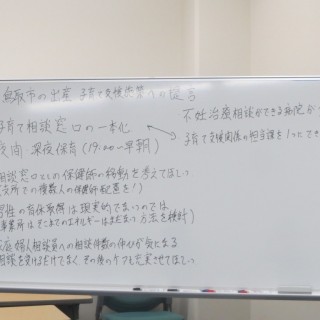 鳥取市の出産 子育て支援策への提言
不妊治療相談ができる病院が
子育て相談窓口の一本化
子育て支援関係の担当課を1つにでき
夜間 深夜保育(19:00〜早朝)
相談窓口としての保健師の移動を考えてほしい
支所での複数人の保健師配置を!)
男性の育休取得は現実的でないのでは
事業所はそこまでのエネルギーはまだない 方法を検討)
家庭婦人相談員への相談件数の伸びが気になる
相談を受けるだけでなく その後のケアも充実させてほしい